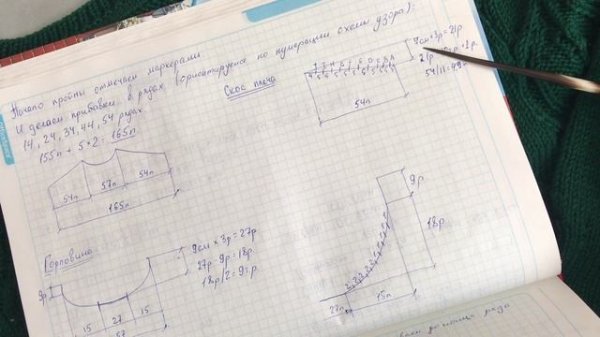 Начало пройм отмечаем маркерами
И делаем прибавки в рядах (ориентируемся по нумерации схемы узора):
14, 24, 34, 44, 54 рядах.
155п + 5×2 = 165п
54п
57п
54п
165п
Скос плеча
7см × 3р = 21р
54п
Горловина
9р
9см × 3р = 27р
27р - 9р = 18р
18р/2 = 9р
15
27
15
57
9р
18р
27п
15п